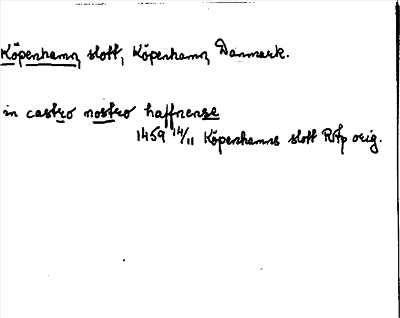 Köpenhamn, slott, Köpenhamn, Danmark.
in castro nostro haffnense
1459 14/11 Köpenhamns slott RAp orig.